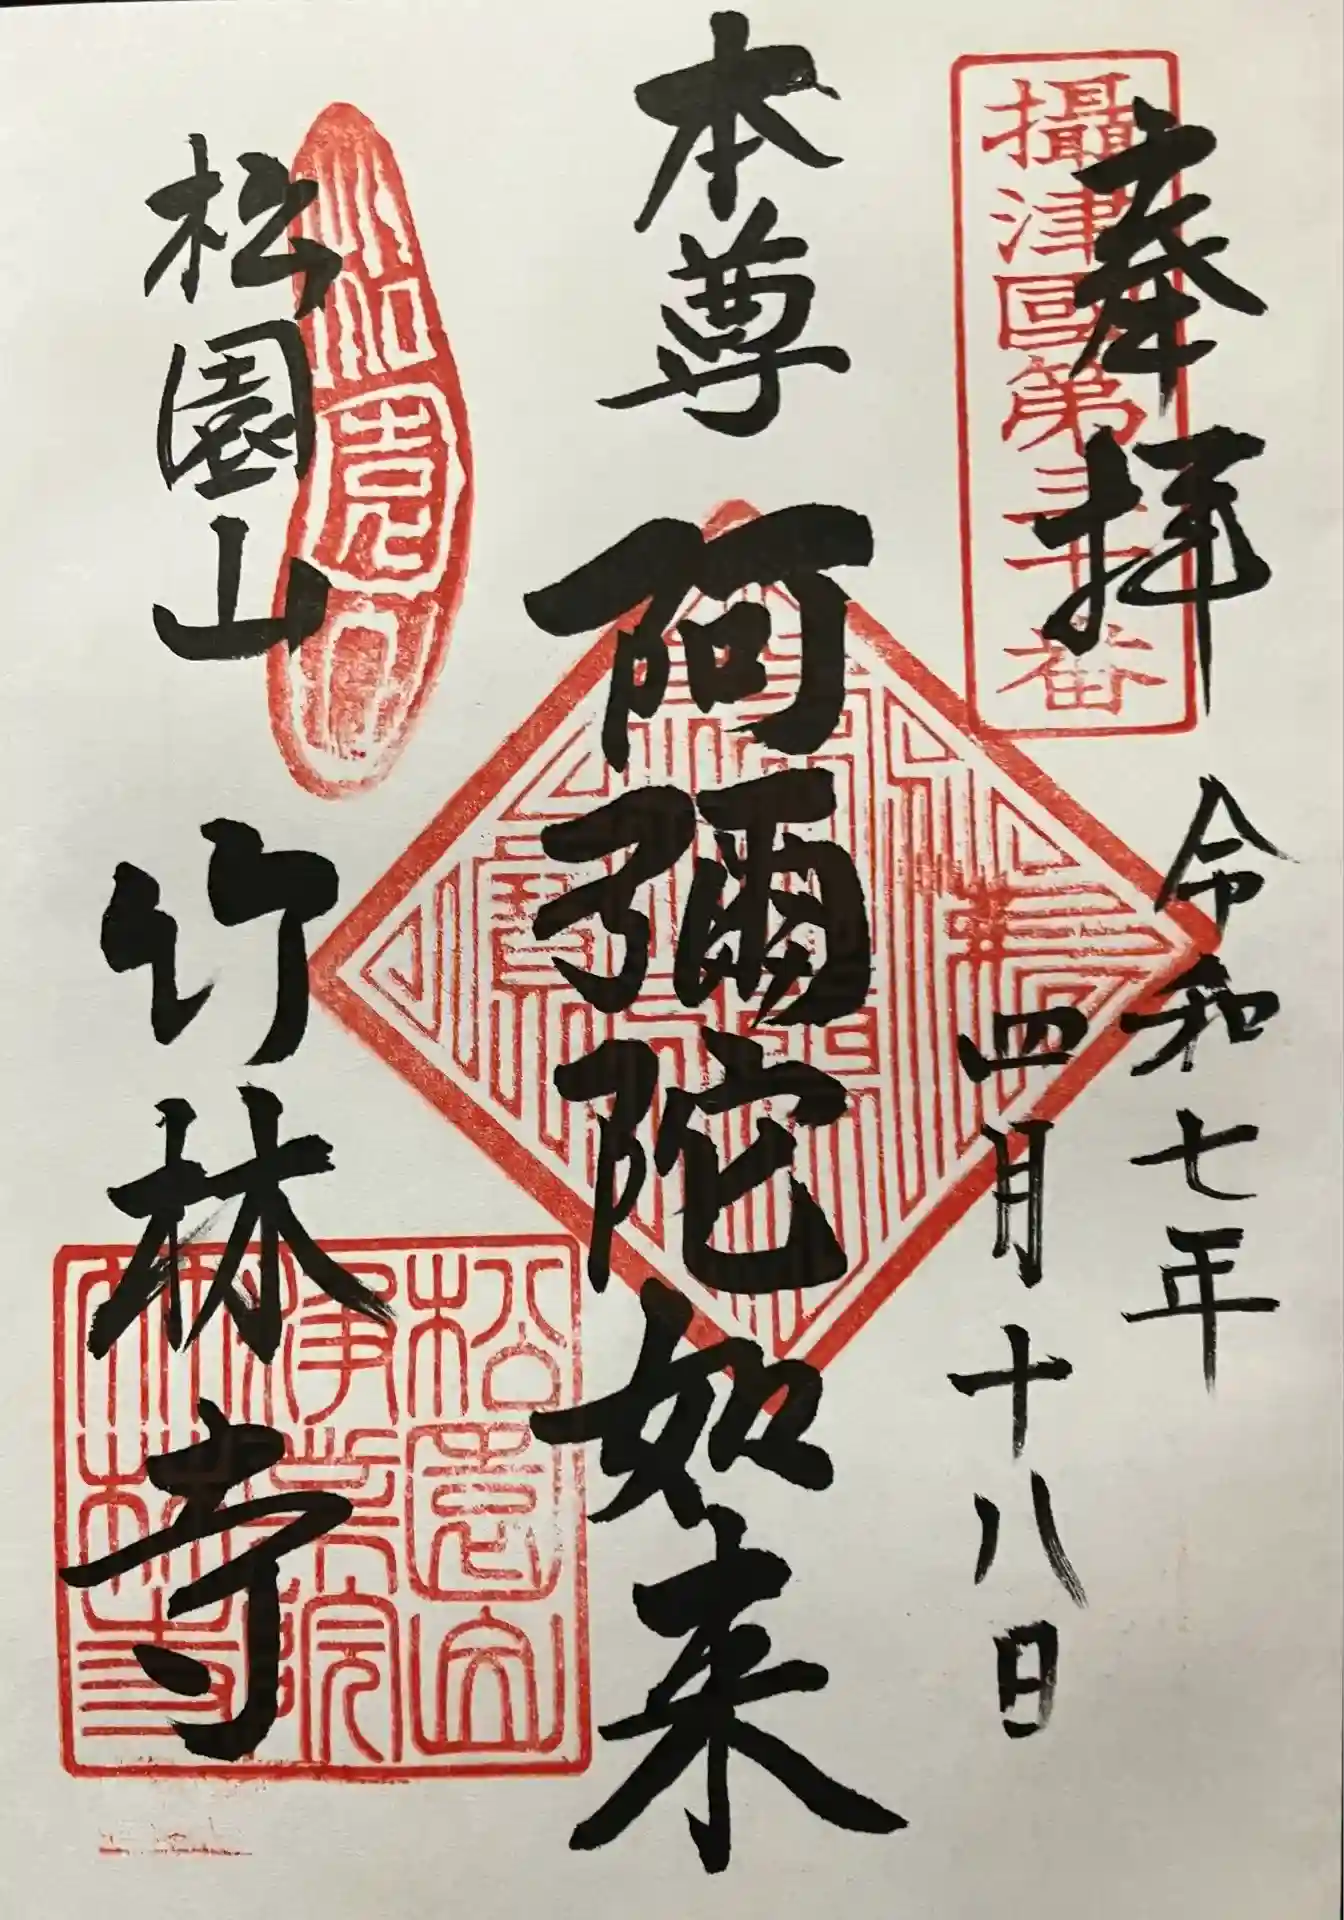 奉拝
攝津國第三十番
令和七年
四月十八日
本尊
阿彌陀如来
松園山
竹林寺
松園山